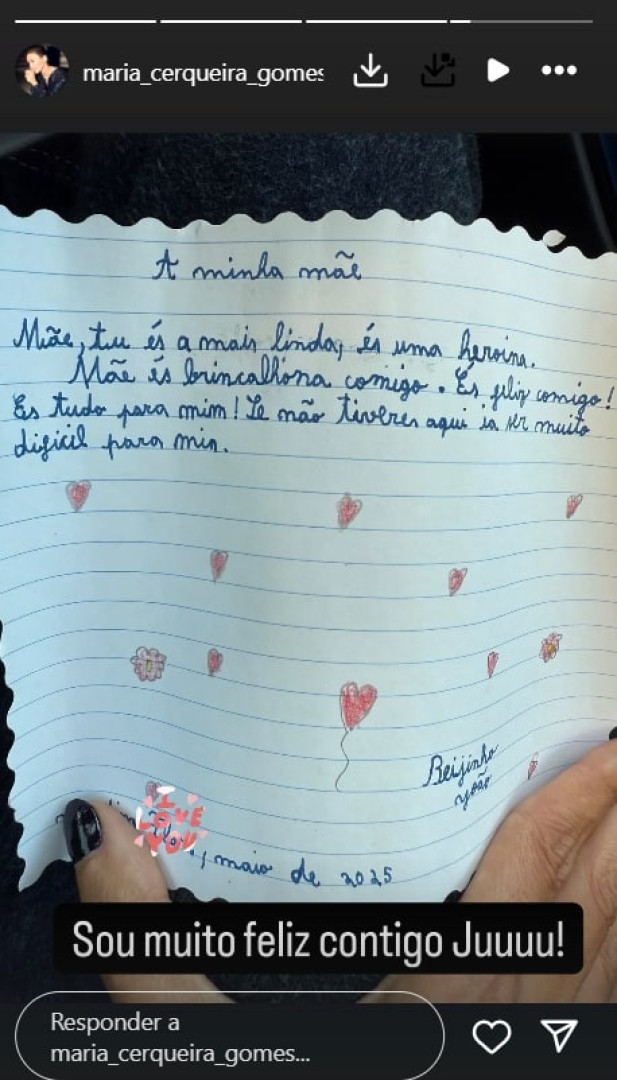 maria_cerqueira_gomes
A minha mãe
Mãe, tu és a mais linda, és uma heroina.
Mãe és brincalhona comigo. És feliz comigo!
És tudo para mim! Se não tiveres aqui ia ser muito
dificil para mim.
Beijinho
João
I
LOVE
YOU
, maio de 2025
Sou muito feliz contigo Juuuu!
Responder a
maria_cerqueira_gomes...